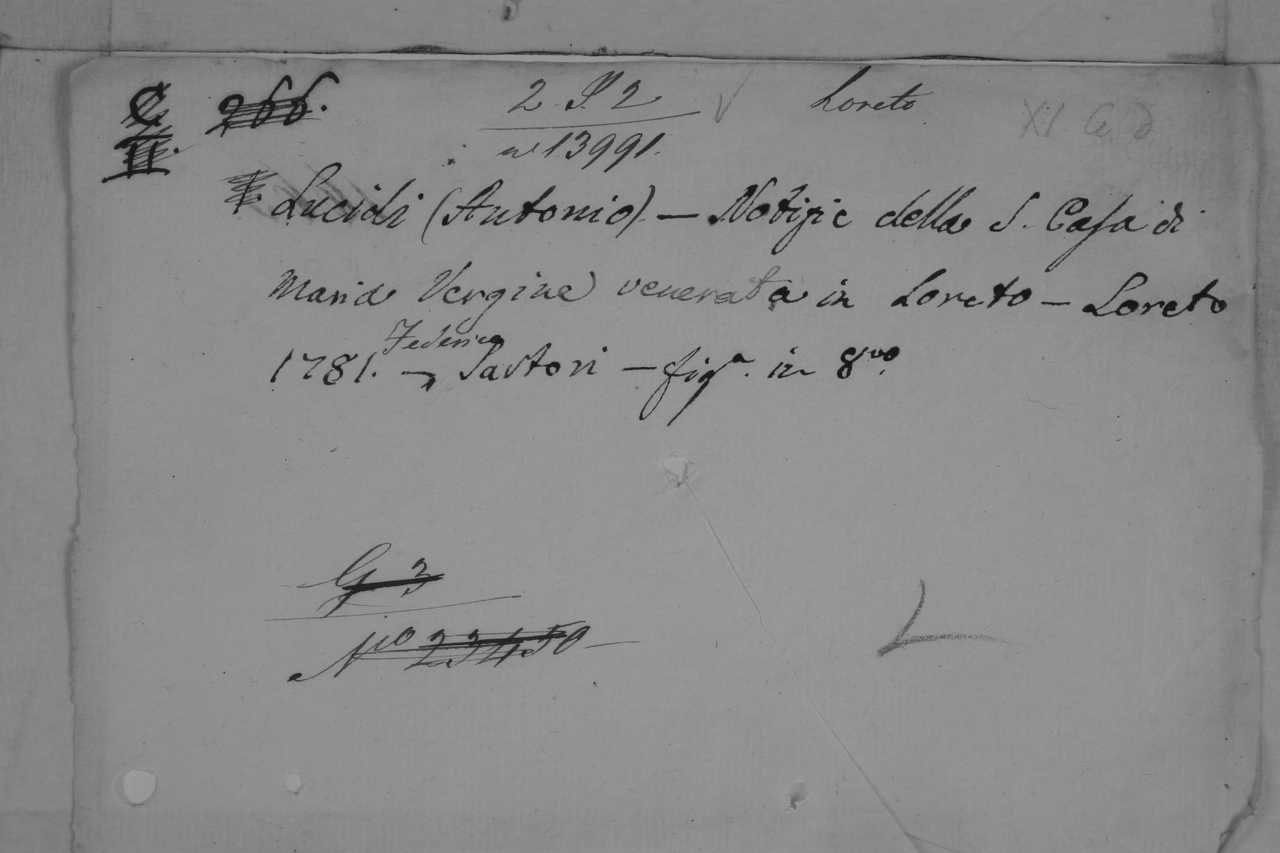 C 266. 2 P 2 Loreto XI. C. D.
II. n° 13991.
Lucidi (Antonio) — Notizie della S. Casa di
Maria Vergine venerata in Loreto — Loreto
Federico
1781. — Sartori — fig.ª in 8.vo
G 3
N.ro 23450
L